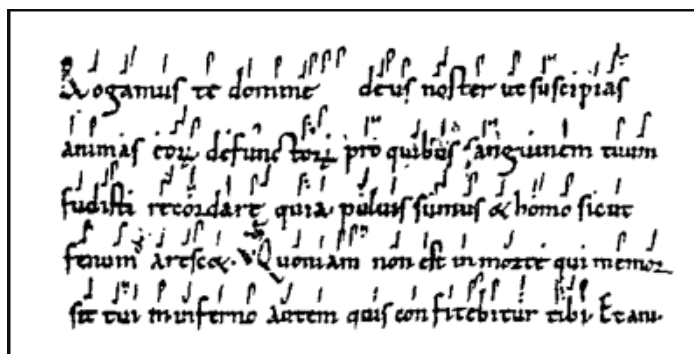 Rogamus te domine deus noster ut suscipias
animas eoꝝ defunctoꝝ pro quibus sanguinem tuum
fudisti recordare quia puluis sumus & homo sicut
fenum aresc&. Quoniam non est in morte qui memor
sit tui in inferno autem quis confitebitur tibi Et ani